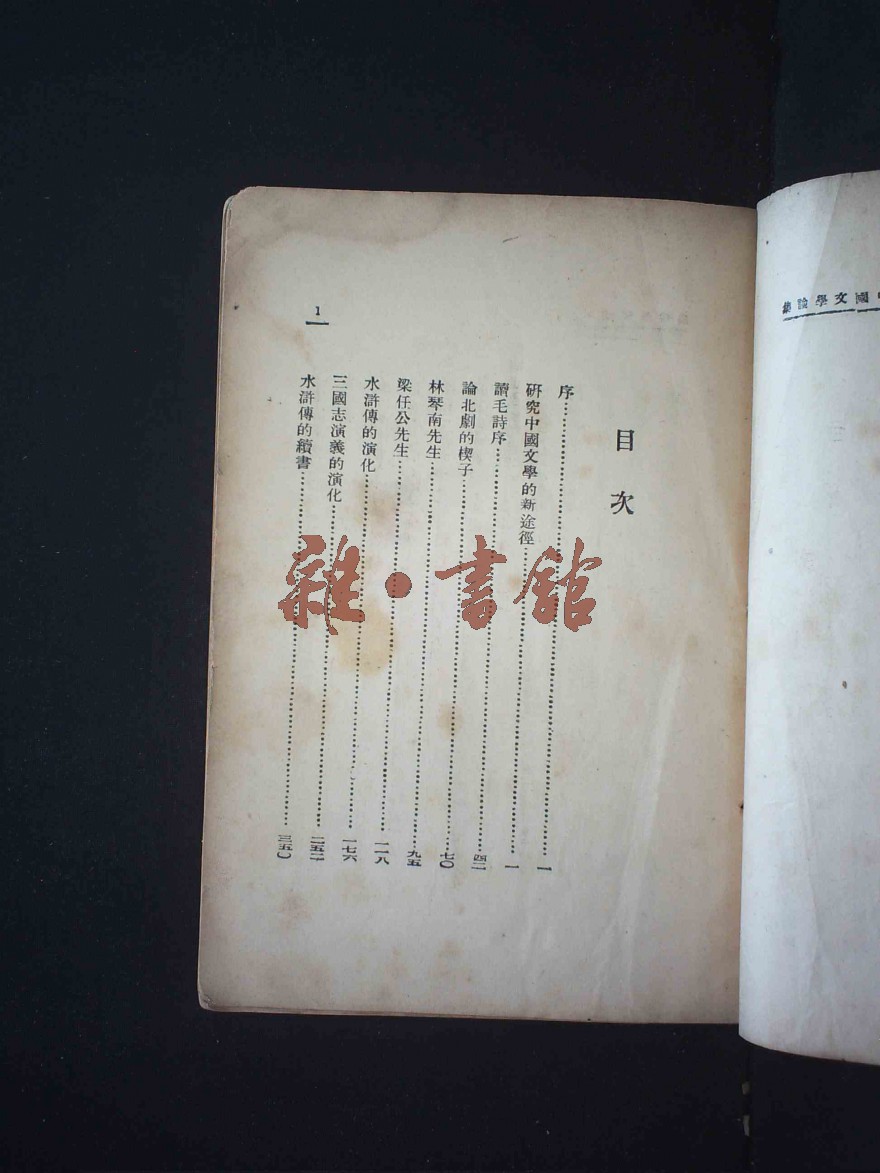 國文學論集
1
目次
序……一
研究中國文學的新途徑……一
讀毛詩序……四二
論北劇的楔子……七〇
林琴南先生……九五
梁任公先生……一一八
水滸傳的演化……一七六
三國志演義的演化……二五二
水滸傳的續書……三五〇
雜·書館